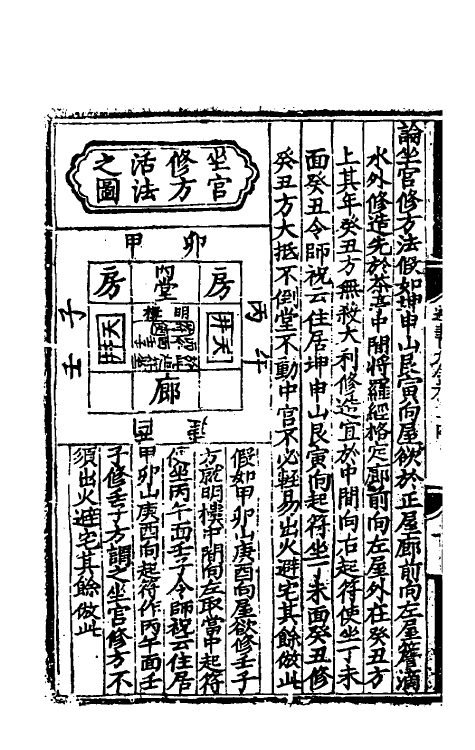 論坐宮修方法假如坤申山艮寅向屋欲於正屋廊前向左屋簷滴
水外修造先於茶亭中間將羅經格定廊前向左屋外在癸丑方
上其年癸丑方無殺大利修造宜於中間向右起符使坐丁未
面癸丑令師祝云住居坤申山艮寅向起符坐丁未面癸丑修
癸丑方大抵不倒堂不動中宮不必輕易出火避宅其餘倣此
坐宮
修方
活法
之圖
卯 甲
房 內堂 房
丙 午
子 壬
明樓
天井
天井
廊
庚 酉
假如甲卯山庚酉向屋欲修壬子
方就明樓中間向左取當中起符
使坐丙午面壬子令師祝云住居
甲卯山庚酉向起符作丙午面壬
子修壬子方謂之坐宮修方不
須出火避宅其餘倣此